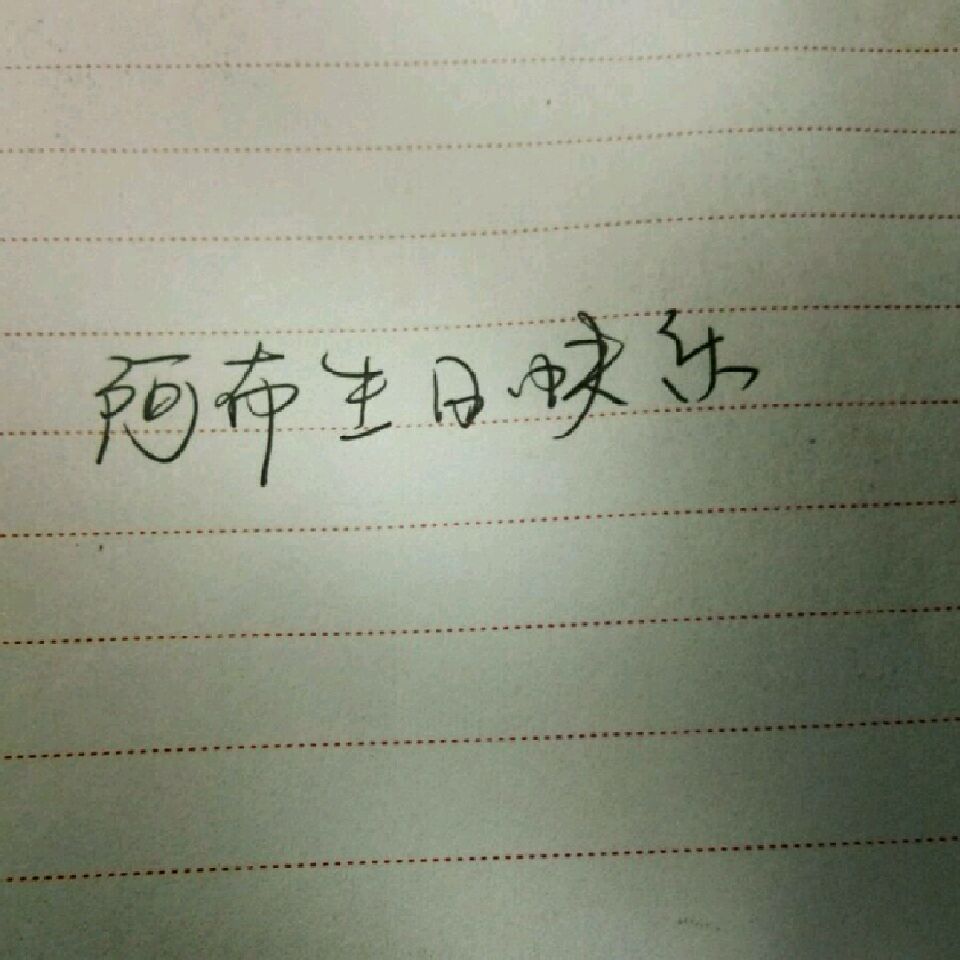 阿布生日快乐